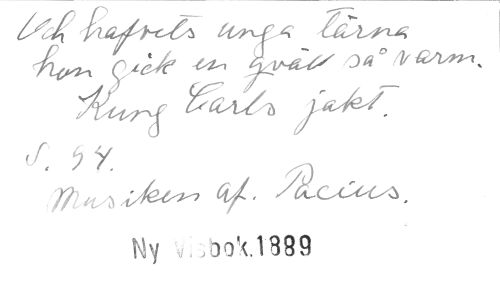 Och hafvets unga tärna
hon gick en qväll så varm.
Kung Carls jakt.
S. 94.
Musiken af. Pacius.
Ny Visbok.1889